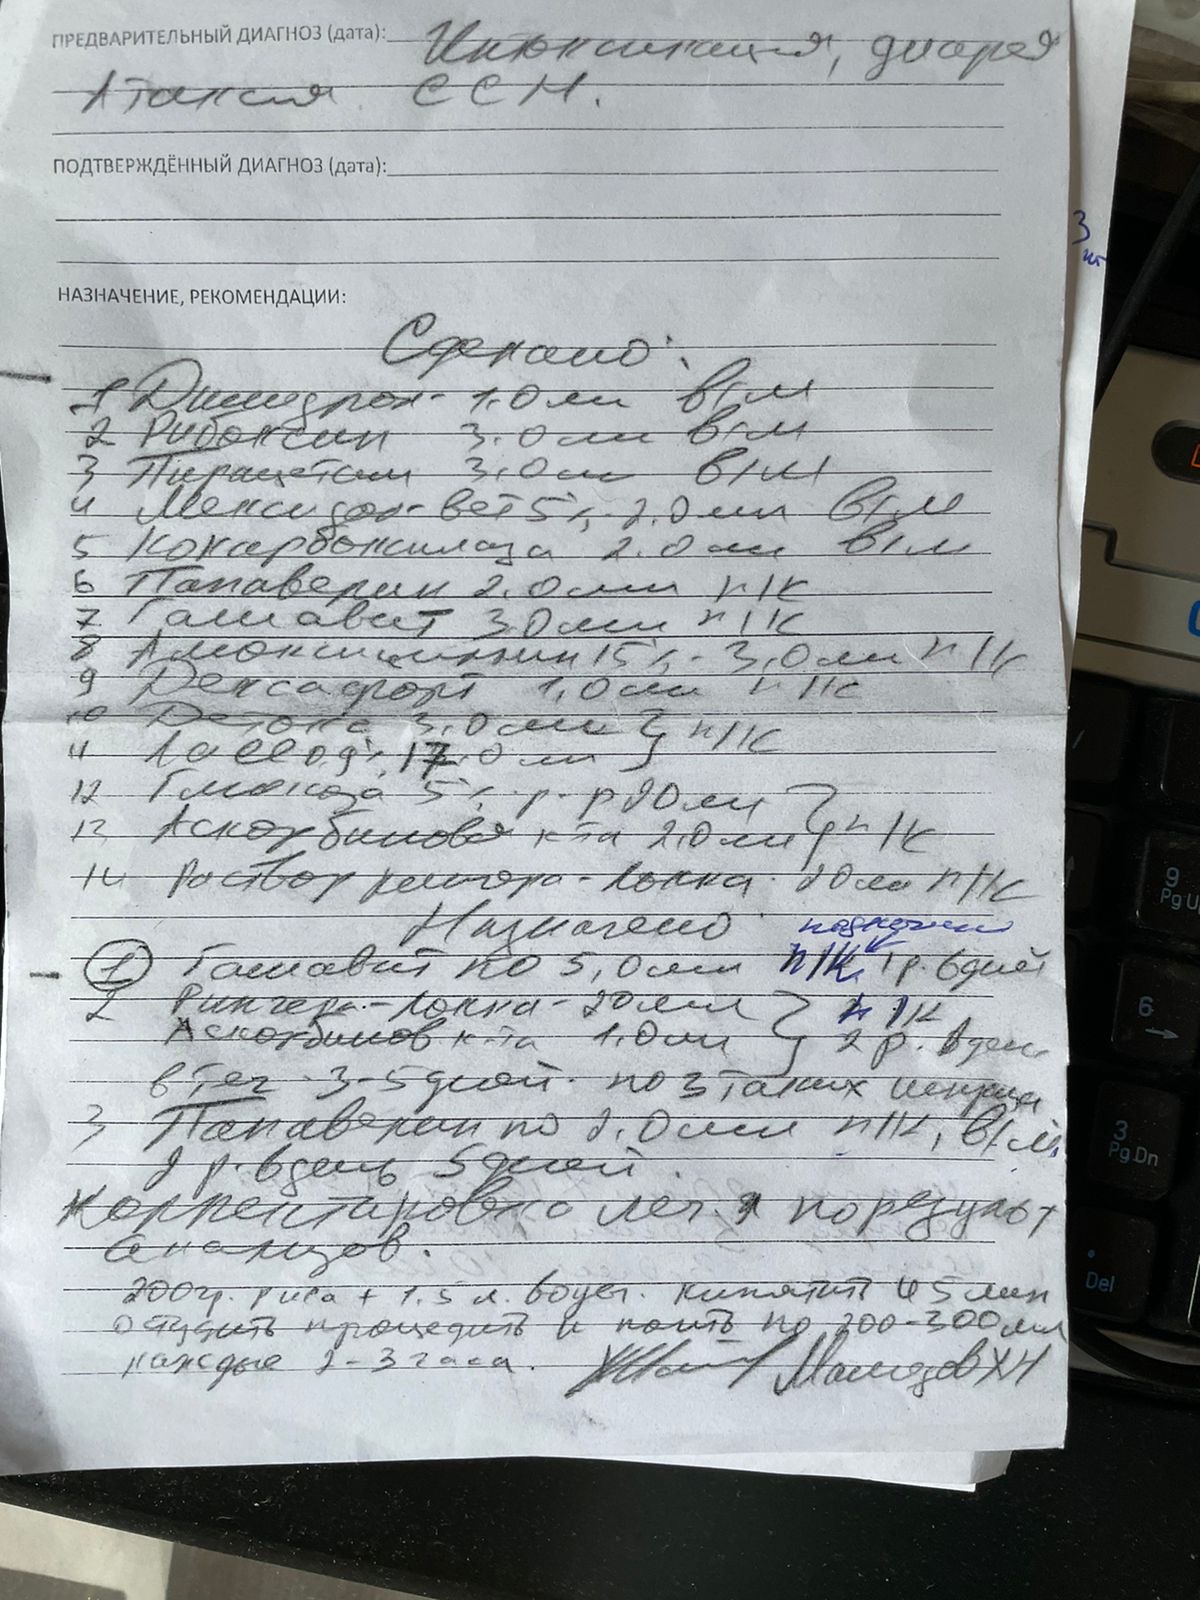 ПРЕДВАРИТЕЛЬНЫЙ ДИАГНОЗ (дата): Интоксикация, диарея
Атаксия. ССН.
ПОДТВЕРЖДЁННЫЙ ДИАГНОЗ (дата):
НАЗНАЧЕНИЕ, РЕКОМЕНДАЦИИ:
Сделано:
1 Димедрол - 1,0 мл в/м
2 Рибоксин 3,0 мл в/м
3 Пирацетам 3,0 мл в/м
4 Мексидол-вет 5% 2,0 мл в/м
5 Кокарбоксилаза 2.0 мл в/м
6 Папаверин 2.0 мл п/к
7 Гамавит 3.0 мл п/к
8 Амоксициллин 15% - 3,0 мл п/к
9 Дексафорт 1,0 мл п/к
10 Детокс 3.0 мл } п/к
11 0,9% 17.0 мл
12 Глюкоза 5% р-р 20 мл } п/к
13 Аскорбиновая к-та 2.0 мл
14 Раствор рингера-Локка 20 мл п/к
Назначено подкожно
1 Гамавит по 5,0 мл п/к 1 р. в день
2 Рингера-Локка - 20 мл } п/к
Аскорбинов к-та 1.0 мл 2 р. в день
в теч 3-5 дней. по 3 таких
3 Папаверин по 2,0 мл п/к, в/м,
2 р. в день 5 дней.
Корректировка леч. я по результ
анализов.
200 гр. риса + 1.5 л. воды. кипятить 45 мин
остудить процедить и поить по 200-300 мл
каждые 2-3 часа. Мамедов ХН
3
9
Pg U
6
3
Pg Dn
Del